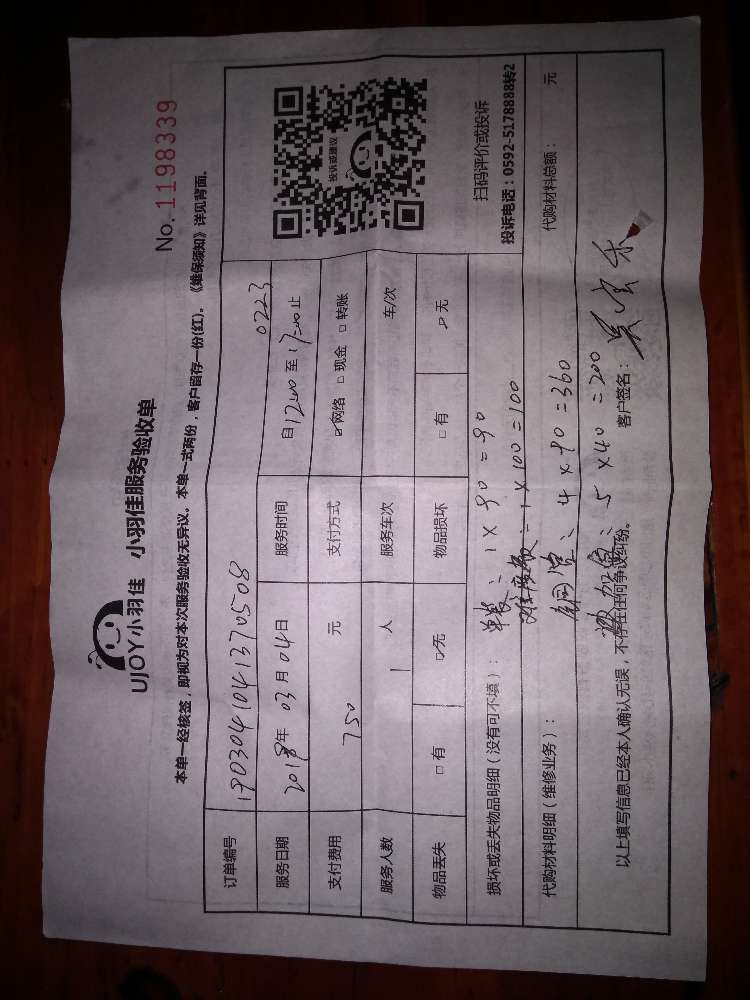 UJOY小羽佳 小羽佳服务验收单
No. 1198339
本单一经核签，即视为对本次服务验收无异议。本单一式两份，客户留存一份(红)。《维保须知》详见背面。
订单编号 1903041041370508 0223
服务日期 2019年 03 月 04 日 服务时间 自 12:00 至 17:00 止
支付费用 750 元 支付方式 ☑网络 □现金 □转账
服务人数 1 人 服务车次 车/次
物品丢失 □有 ☑无 物品损坏 □有 ☑无
投诉或建议
扫码评价或投诉
投诉电话：0592-5178888转2
损坏或丢失物品明细（没有可不填）： 1×90=90
1×100=100
代购材料明细（维修业务）： 4×90=360 代购材料总额： 元
5×40=200
以上填写信息已经本人确认无误，不存在任何争议纠纷。 客户签名：